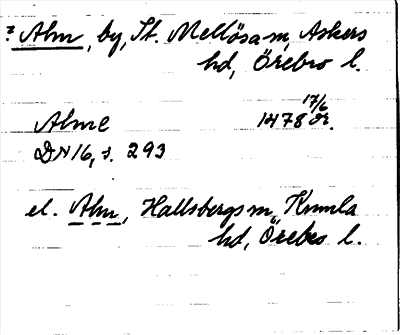 ? Alm, by, St. Mellösa sn, Askers
hd, Örebro l.
17/6
Alme 1478 or.
DN 16, s. 293
el. Alm, Hallsbergs sn, Kumla
hd, Örebro l.